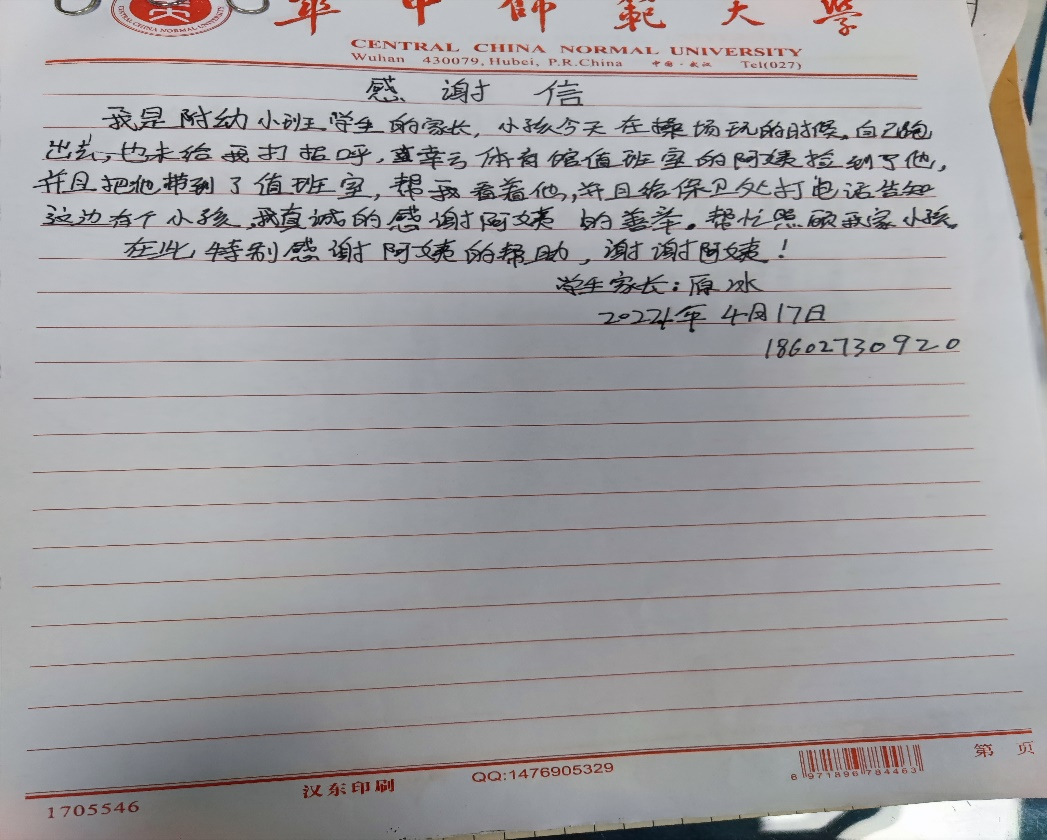 華中師範大學
CENTRAL CHINA NORMAL UNIVERSITY
Wuhan 430079, Hubei, P.R.China 中国·武汉 Tel(027)
感谢信
我是附幼小班学生的家长,小孩今天在操场玩的时候,自己跑
出去,也未给我打招呼,幸亏体育馆值班室的阿姨捡到了他,
并且把他带到了值班室,帮我看着他,并且给保卫处打电话告知
这边有个小孩,我真诚的感谢阿姨的善举。帮忙照顾我家小孩
在此,特别感谢阿姨的帮助,谢谢阿姨!
学生家长:原冰
2024年4月17日
18602730920
1705546
汉东印刷
QQ:1476905329
6971896784463
第 页